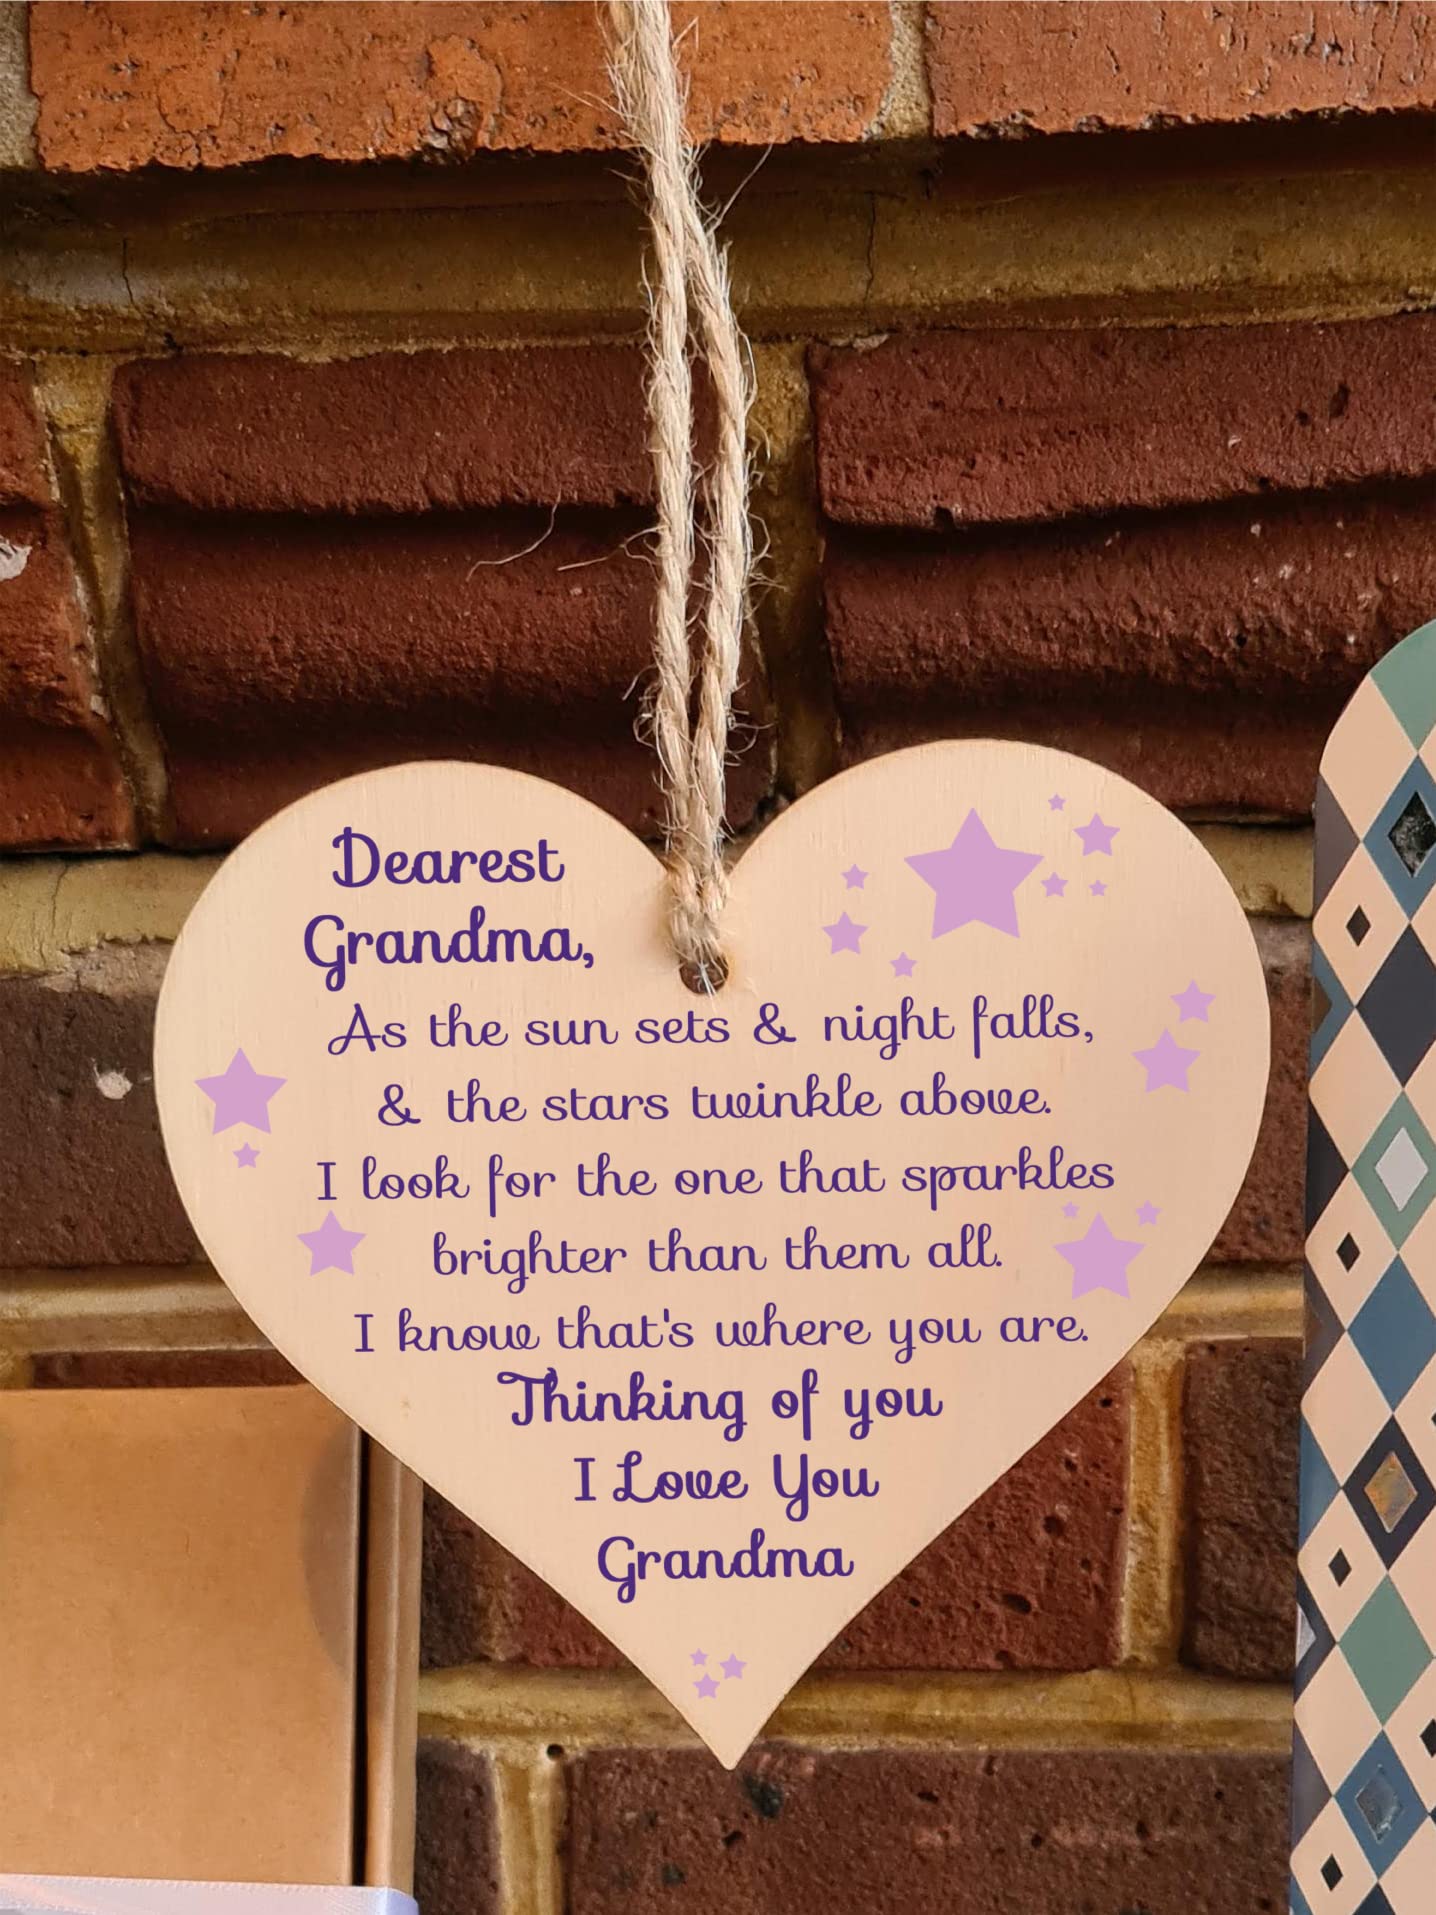 Dearest
Grandma,
As the sun sets & night falls,
& the stars twinkle above.
I look for the one that sparkles
brighter than them all.
I know that's where you are.
Thinking of you
I Love You
Grandma